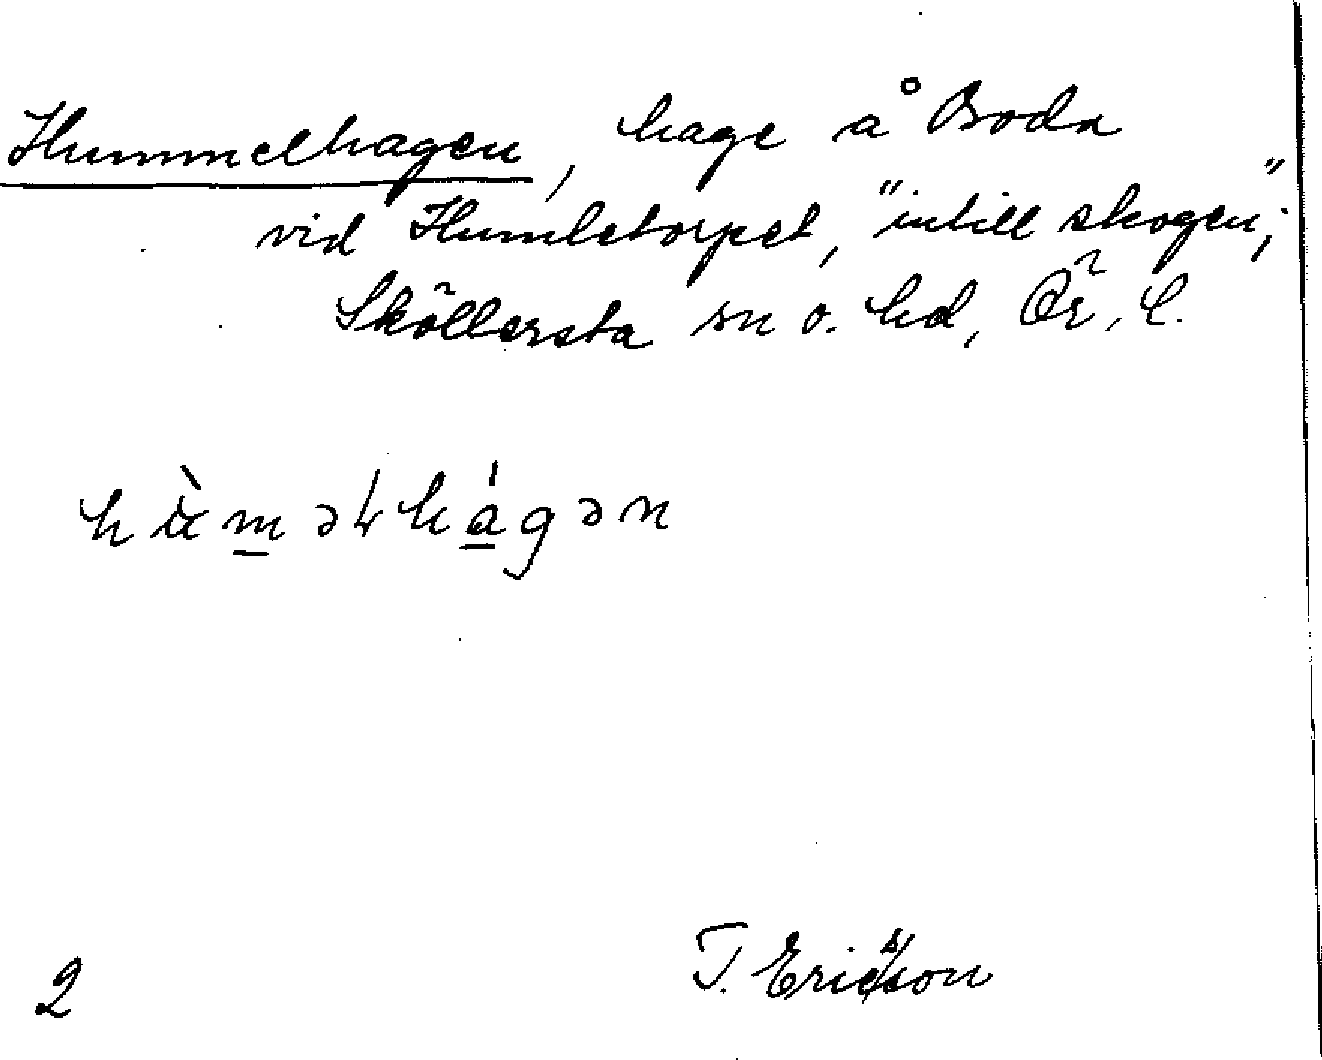 Hummelhagen, hage å Boda
vid Humletorpet, "intill skogen";
Sköllersta sn o. hd, Ör. l.
hùməɫhágən
T. Ericsson
2